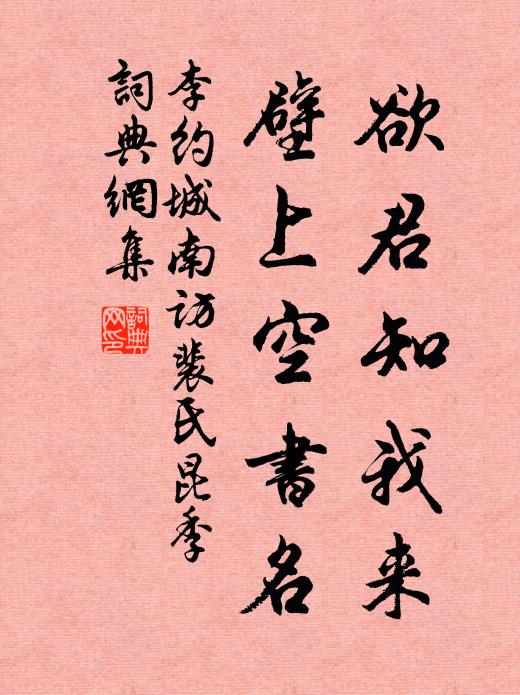 欲君知我来
壁上空書名
李約城南访裴氏昆季
詞典網集
詞典网印